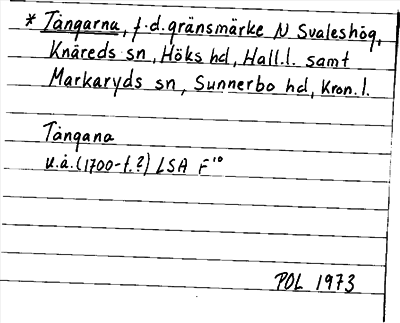 * Tångarna, f.d. gränsmärke N Svaleshög,
Knäreds sn, Höks hd, Hall.l. samt
Markaryds sn, Sunnerbo hd, Kron.l.
Tångana
u.å. (1700-t.?) LSA F¹⁰
POL 1973